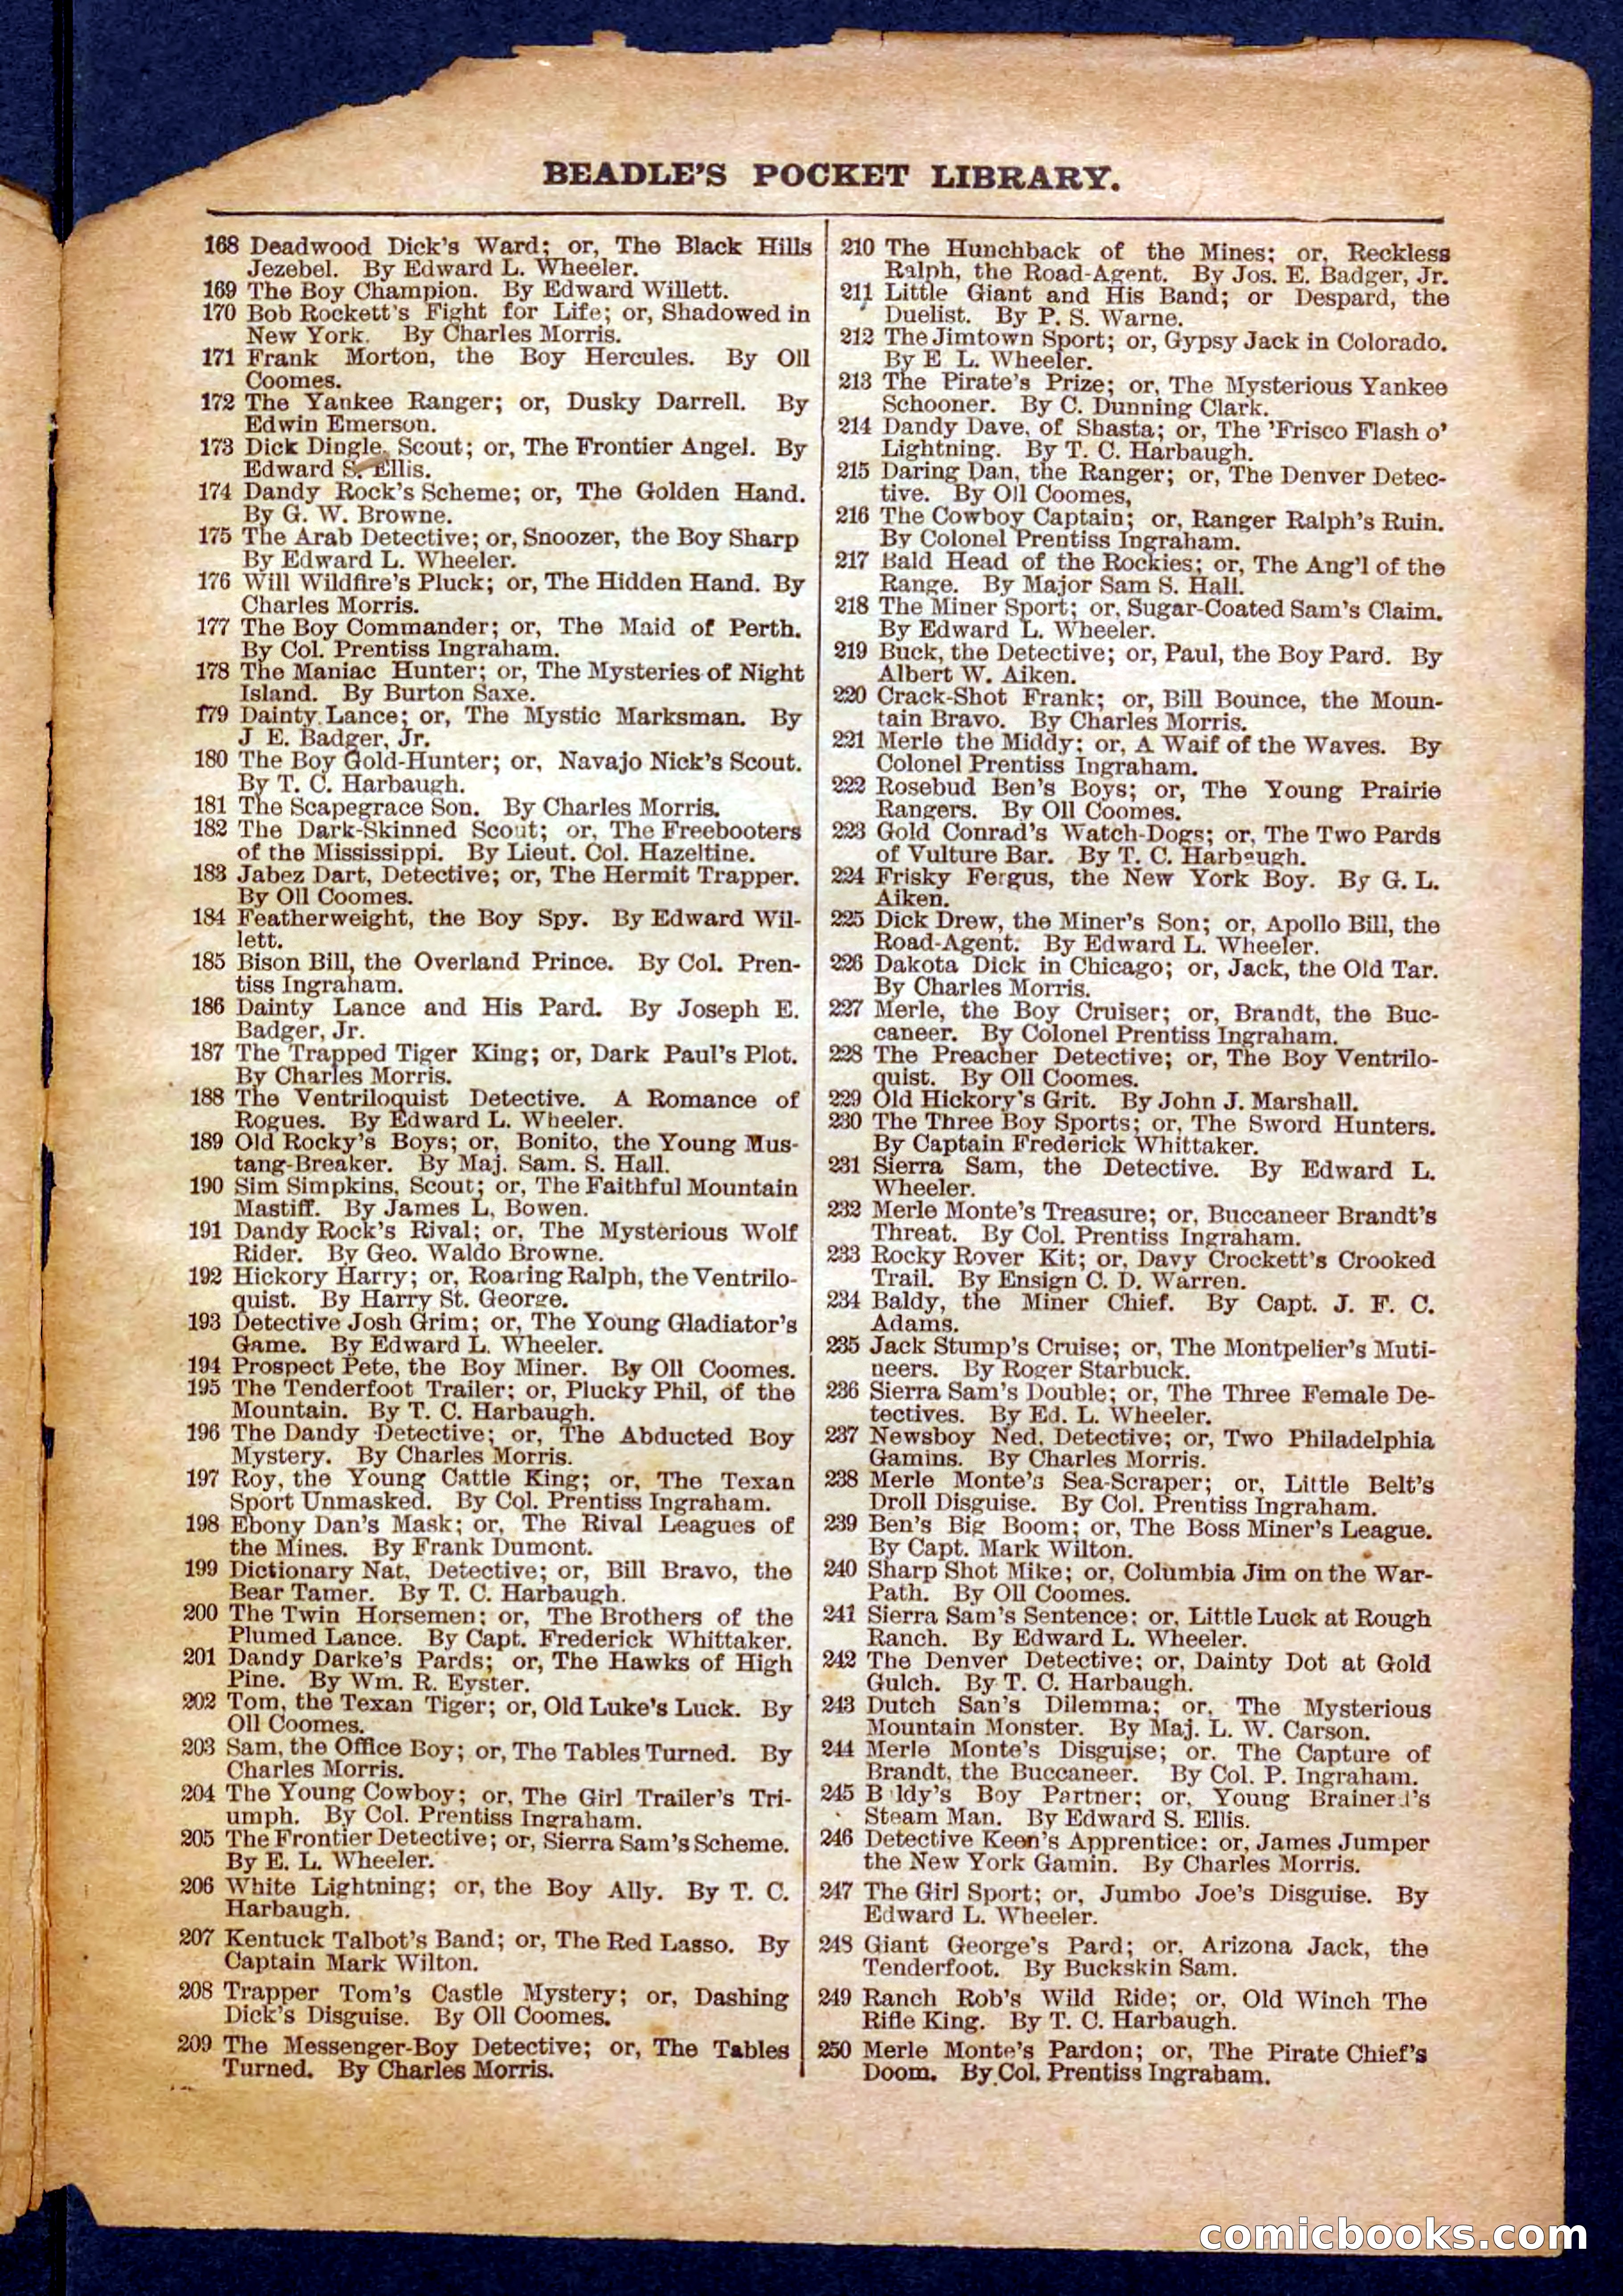 BEADLE'S POCKET LIBRARY.
168 Deadwood Dick's Ward; or, The Black Hills
Jezebel. By Edward L. Wheeler.
169 The Boy Champion. By Edward Willett.
170 Bob Rockett's Fight for Life; or, Shadowed in
New York. By Charles Morris.
171 Frank Morton, the Boy Hercules. By Oll
Coomes.
172 The Yankee Ranger; or, Dusky Darrell. By
Edwin Emerson.
173 Dick Dingle, Scout; or, The Frontier Angel. By
Edward S. Ellis.
174 Dandy Rock's Scheme; or, The Golden Hand.
By G. W. Browne.
175 The Arab Detective; or, Snoozer, the Boy Sharp
By Edward L. Wheeler.
176 Will Wildfire's Pluck; or, The Hidden Hand. By
Charles Morris.
177 The Boy Commander; or, The Maid of Perth.
By Col. Prentiss Ingraham.
178 The Maniac Hunter; or, The Mysteries of Night
Island. By Burton Saxe.
179 Dainty Lance; or, The Mystic Marksman. By
J E. Badger, Jr.
180 The Boy Gold-Hunter; or, Navajo Nick's Scout.
By T. C. Harbaugh.
181 The Scapegrace Son. By Charles Morris.
182 The Dark-Skinned Scout; or, The Freebooters
of the Mississippi. By Lieut. Col. Hazeltine.
183 Jabez Dart, Detective; or, The Hermit Trapper.
By Oll Coomes.
184 Featherweight, the Boy Spy. By Edward Wil-
lett.
185 Bison Bill, the Overland Prince. By Col. Pren-
tiss Ingraham.
186 Dainty Lance and His Pard. By Joseph E.
Badger, Jr.
187 The Trapped Tiger King; or, Dark Paul's Plot.
By Charles Morris.
188 The Ventriloquist Detective. A Romance of
Rogues. By Edward L. Wheeler.
189 Old Rocky's Boys; or, Bonito, the Young Mus-
tang-Breaker. By Maj. Sam. S. Hall.
190 Sim Simpkins, Scout; or, The Faithful Mountain
Mastiff. By James L, Bowen.
191 Dandy Rock's Rival; or, The Mysterious Wolf
Rider. By Geo. Waldo Browne.
192 Hickory Harry; or, Roaring Ralph, the Ventrilo-
quist. By Harry St. George.
193 Detective Josh Grim; or, The Young Gladiator's
Game. By Edward L. Wheeler.
194 Prospect Pete, the Boy Miner. By Oll Coomes.
195 The Tenderfoot Trailer; or, Plucky Phil, of the
Mountain. By T. C. Harbaugh.
196 The Dandy Detective; or, The Abducted Boy
Mystery. By Charles Morris.
197 Roy, the Young Cattle King; or, The Texan
Sport Unmasked. By Col. Prentiss Ingraham.
198 Ebony Dan's Mask; or, The Rival Leagues of
the Mines. By Frank Dumont.
199 Dictionary Nat, Detective; or, Bill Bravo, the
Bear Tamer. By T. C. Harbaugh.
200 The Twin Horsemen; or, The Brothers of the
Plumed Lance. By Capt. Frederick Whittaker.
201 Dandy Darke's Pards; or, The Hawks of High
Pine. By Wm. R. Eyster.
202 Tom, the Texan Tiger; or, Old Luke's Luck. By
Oll Coomes.
203 Sam, the Office Boy; or, The Tables Turned. By
Charles Morris.
204 The Young Cowboy; or, The Girl Trailer's Tri-
umph. By Col. Prentiss Ingraham.
205 The Frontier Detective; or, Sierra Sam's Scheme.
By E. L. Wheeler.
206 White Lightning; or, the Boy Ally. By T. C.
Harbaugh.
207 Kentuck Talbot's Band; or, The Red Lasso. By
Captain Mark Wilton.
208 Trapper Tom's Castle Mystery; or, Dashing
Dick's Disguise. By Oll Coomes.
209 The Messenger-Boy Detective; or, The Tables
Turned. By Charles Morris.
210 The Hunchback of the Mines; or, Reckless
Ralph, the Road-Agent. By Jos. E. Badger, Jr.
211 Little Giant and His Band; or Despard, the
Duelist. By P. S. Warne.
212 The Jimtown Sport; or, Gypsy Jack in Colorado.
By E L. Wheeler.
213 The Pirate's Prize; or, The Mysterious Yankee
Schooner. By C. Dunning Clark.
214 Dandy Dave, of Shasta; or, The 'Frisco Flash o'
Lightning. By T. C. Harbaugh.
215 Daring Dan, the Ranger; or, The Denver Detec-
tive. By Oll Coomes,
216 The Cowboy Captain; or, Ranger Ralph's Ruin.
By Colonel Prentiss Ingraham.
217 Bald Head of the Rockies; or, The Ang'l of the
Range. By Major Sam S. Hall.
218 The Miner Sport; or, Sugar-Coated Sam's Claim.
By Edward L. Wheeler.
219 Buck, the Detective; or, Paul, the Boy Pard. By
Albert W. Aiken.
220 Crack-Shot Frank; or, Bill Bounce, the Moun-
tain Bravo. By Charles Morris.
221 Merle the Middy; or, A Waif of the Waves. By
Colonel Prentiss Ingraham.
222 Rosebud Ben's Boys; or, The Young Prairie
Rangers. By Oll Coomes.
223 Gold Conrad's Watch-Dogs; or, The Two Pards
of Vulture Bar. By T. C. Harbaugh.
224 Frisky Fergus, the New York Boy. By G. L.
Aiken.
225 Dick Drew, the Miner's Son; or, Apollo Bill, the
Road-Agent. By Edward L. Wheeler.
226 Dakota Dick in Chicago; or, Jack, the Old Tar.
By Charles Morris.
227 Merle, the Boy Cruiser; or, Brandt, the Buc-
caneer. By Colonel Prentiss Ingraham.
228 The Preacher Detective; or, The Boy Ventrilo-
quist. By Oll Coomes.
229 Old Hickory's Grit. By John J. Marshall.
230 The Three Boy Sports; or, The Sword Hunters.
By Captain Frederick Whittaker.
231 Sierra Sam, the Detective. By Edward L.
Wheeler.
232 Merle Monte's Treasure; or, Buccaneer Brandt's
Threat. By Col. Prentiss Ingraham.
233 Rocky Rover Kit; or, Davy Crockett's Crooked
Trail. By Ensign C. D. Warren.
234 Baldy, the Miner Chief. By Capt. J. F. C.
Adams.
235 Jack Stump's Cruise; or, The Montpelier's Muti-
neers. By Roger Starbuck.
236 Sierra Sam's Double; or, The Three Female De-
tectives. By Ed. L. Wheeler.
237 Newsboy Ned, Detective; or, Two Philadelphia
Gamins. By Charles Morris.
238 Merle Monte's Sea-Scraper; or, Little Belt's
Droll Disguise. By Col. Prentiss Ingraham.
239 Ben's Big Boom; or, The Boss Miner's League.
By Capt. Mark Wilton.
240 Sharp Shot Mike; or, Columbia Jim on the War-
Path. By Oll Coomes.
241 Sierra Sam's Sentence; or, Little Luck at Rough
Ranch. By Edward L. Wheeler.
242 The Denver Detective; or, Dainty Dot at Gold
Gulch. By T. C. Harbaugh.
243 Dutch San's Dilemma; or, The Mysterious
Mountain Monster. By Maj. L. W. Carson.
244 Merle Monte's Disguise; or. The Capture of
Brandt, the Buccaneer. By Col. P. Ingraham.
245 B ldy's Boy Partner; or, Young Brainerd's
Steam Man. By Edward S. Ellis.
246 Detective Keen's Apprentice; or, James Jumper
the New York Gamin. By Charles Morris.
247 The Girl Sport; or, Jumbo Joe's Disguise. By
Edward L. Wheeler.
248 Giant George's Pard; or, Arizona Jack, the
Tenderfoot. By Buckskin Sam.
249 Ranch Rob's Wild Ride; or, Old Winch The
Rifle King. By T. C. Harbaugh.
250 Merle Monte's Pardon; or, The Pirate Chief's
Doom. By Col. Prentiss Ingraham.
comicbooks.com